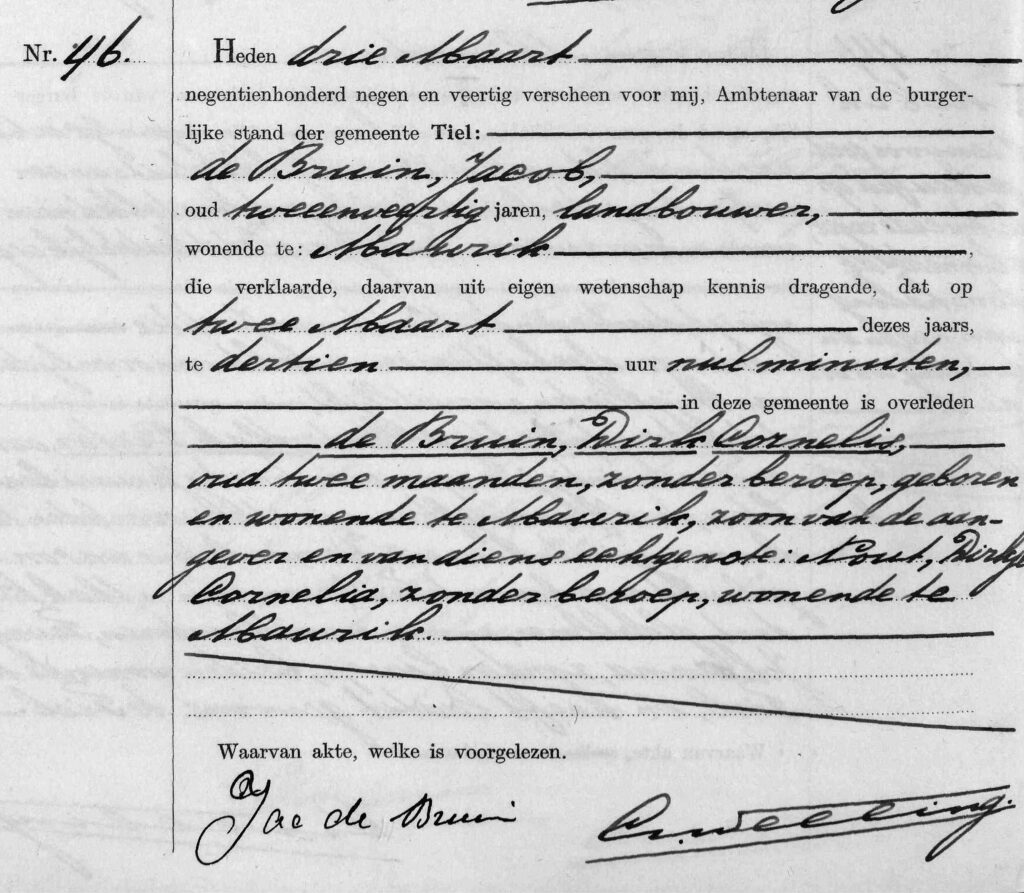 Nr. 46. Heden drie Maart
negentienhonderd negen en veertig verscheen voor mij, Ambtenaar van de burger-
lijke stand der gemeente Tiel:
de Bruin, Jacob,
oud tweeenveertig jaren, landbouwer,
wonende te: Maurik,
die verklaarde, daarvan uit eigen wetenschap kennis dragende, dat op
twee Maart dezes jaars,
te dertien uur nul minuten,
in deze gemeente is overleden
de Bruin, Dirk Cornelis,
oud twee maanden, zonder beroep, geboren
en wonende te Maurik, zoon van de aan-
gever en van diens echtgenote: Nout, Dirkje
Cornelia, zonder beroep, wonende te
Maurik.
Waarvan akte, welke is voorgelezen.
Jac de Bruin